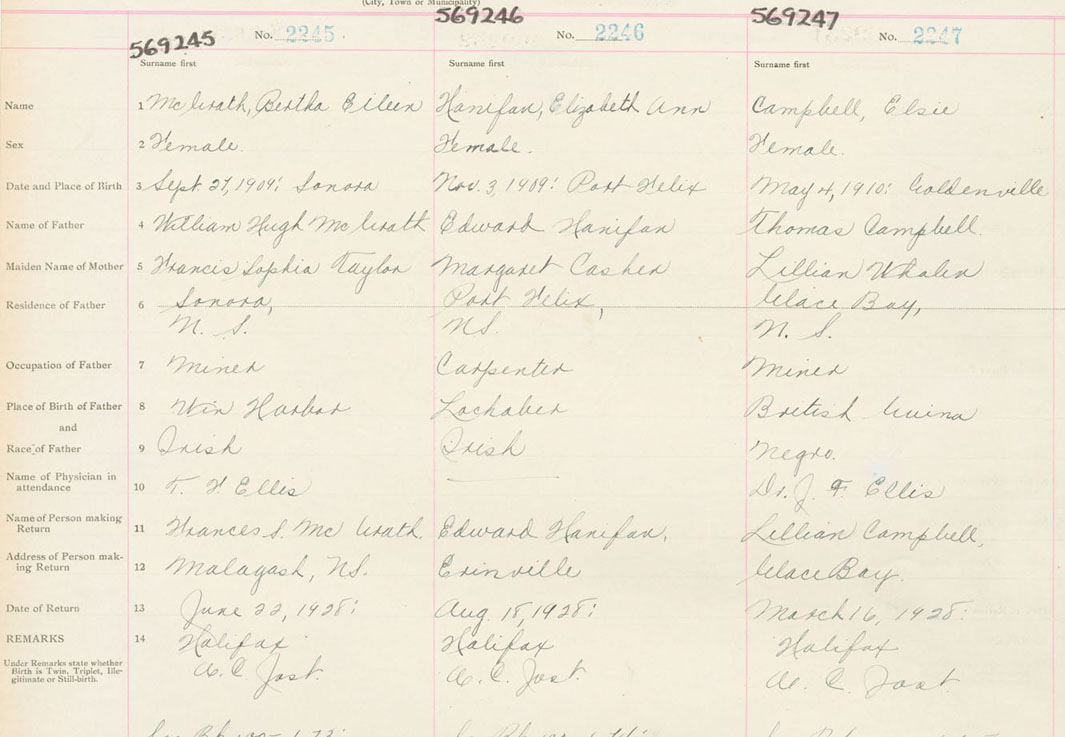 (City, Town or Municipality)
569245 No. 2245 569246 No. 2246 569247 No. 2247
Surname first Surname first Surname first
Name 1 McGrath, Bertha Eileen Hanifan, Elizabeth Ann Campbell, Elsie
Sex 2 Female. Female. Female.
Date and Place of Birth 3 Sept 27, 1909: Sonora Nov. 3, 1909: Port Felix May 4, 1910: Goldenville
Name of Father 4 William Hugh McGrath Edward Hanifan Thomas Campbell.
Maiden Name of Mother 5 Francis Sophia Taylor Margaret Casher Lillian Whalen
Residence of Father 6 Sonora, Port Felix, Glace Bay,
N. S. NS. N. S.
Occupation of Father 7 Miner Carpenter Miner
Place of Birth of Father 8 Win Harbor Lochaber British Guina
and
Race of Father 9 Irish Irish Negro.
Name of Physician in
attendance 10 T. F Ellis Dr. J. F. Ellis
Name of Person making
Return 11 Frances S. McGrath. Edward Hanifan. Lillian Campbell.
Address of Person mak-
ing Return 12 Malagash, NS. Erinville Glace Bay.
Date of Return 13 June 22, 1928: Aug. 18, 1928: March 16, 1928:
REMARKS 14 Halifax Halifax Halifax
Under Remarks state whether
Birth is Twin, Triplet, Ille-
gitimate or Still-birth.
A. C. Jost. A. C. Jost. A. C. Jost.